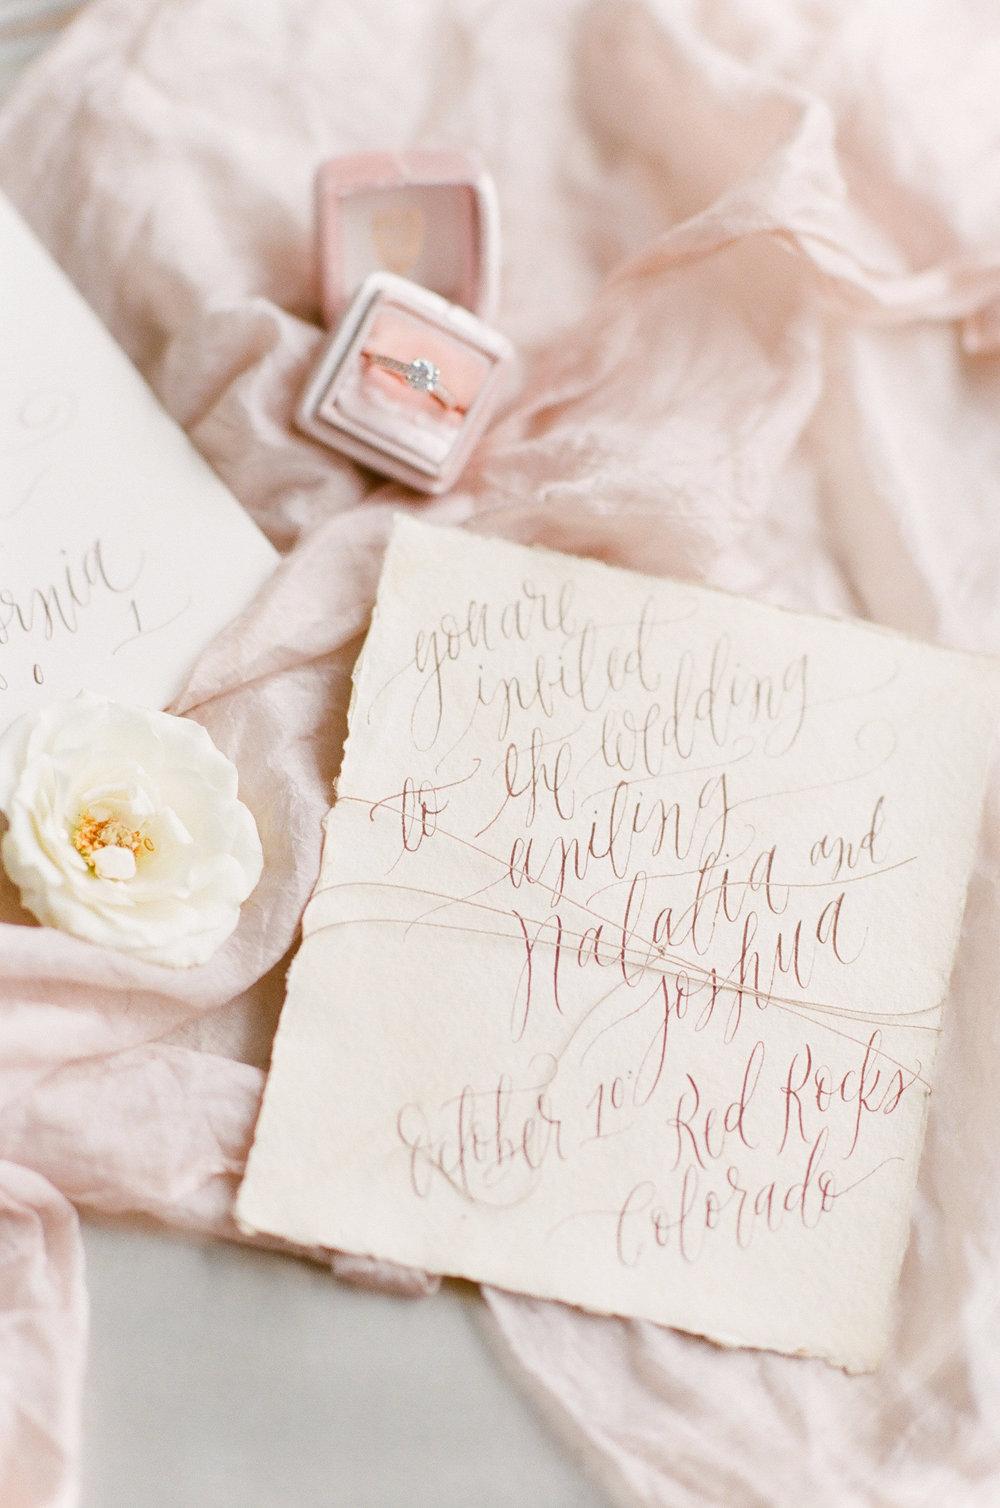 ornia
you are
invited
to the wedding
uniting
Natalia and
Joshua
October 10
Red Rocks
Colorado